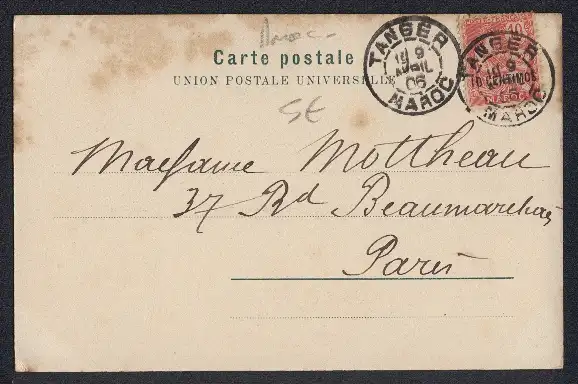 Maroc
Carte postale
UNION POSTALE UNIVERSELLE
TANGER
9
AVRIL
06
MAROC
10
TANGER
9
10 CENTIMOS
MAROC
MAROC
SE
Madame Mottheau
37 Bd Beaumarchais
Paris